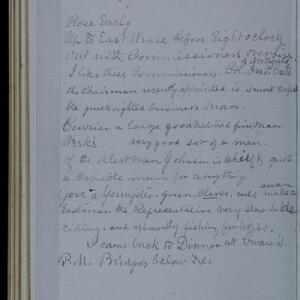 Rose Early
Up to East Weare before Eight o'clock
Out with Commissioners over line
to Northfield
I like these Commissioners. Col. Cate
the Chairman recently appointed is smart capa
ble quick sighted business man.
Currier a large good natured fine man
Weeks very good sort of a man.
of the Selectmen Johnson is chief & quite
a capable man for any thing
Gove a Youngster, Green, Clever, will make a man
Eastman the Representative very slow in de
ciding. and apparently fishing for votes.
I came back to Dinner at
P.M. Bridges below